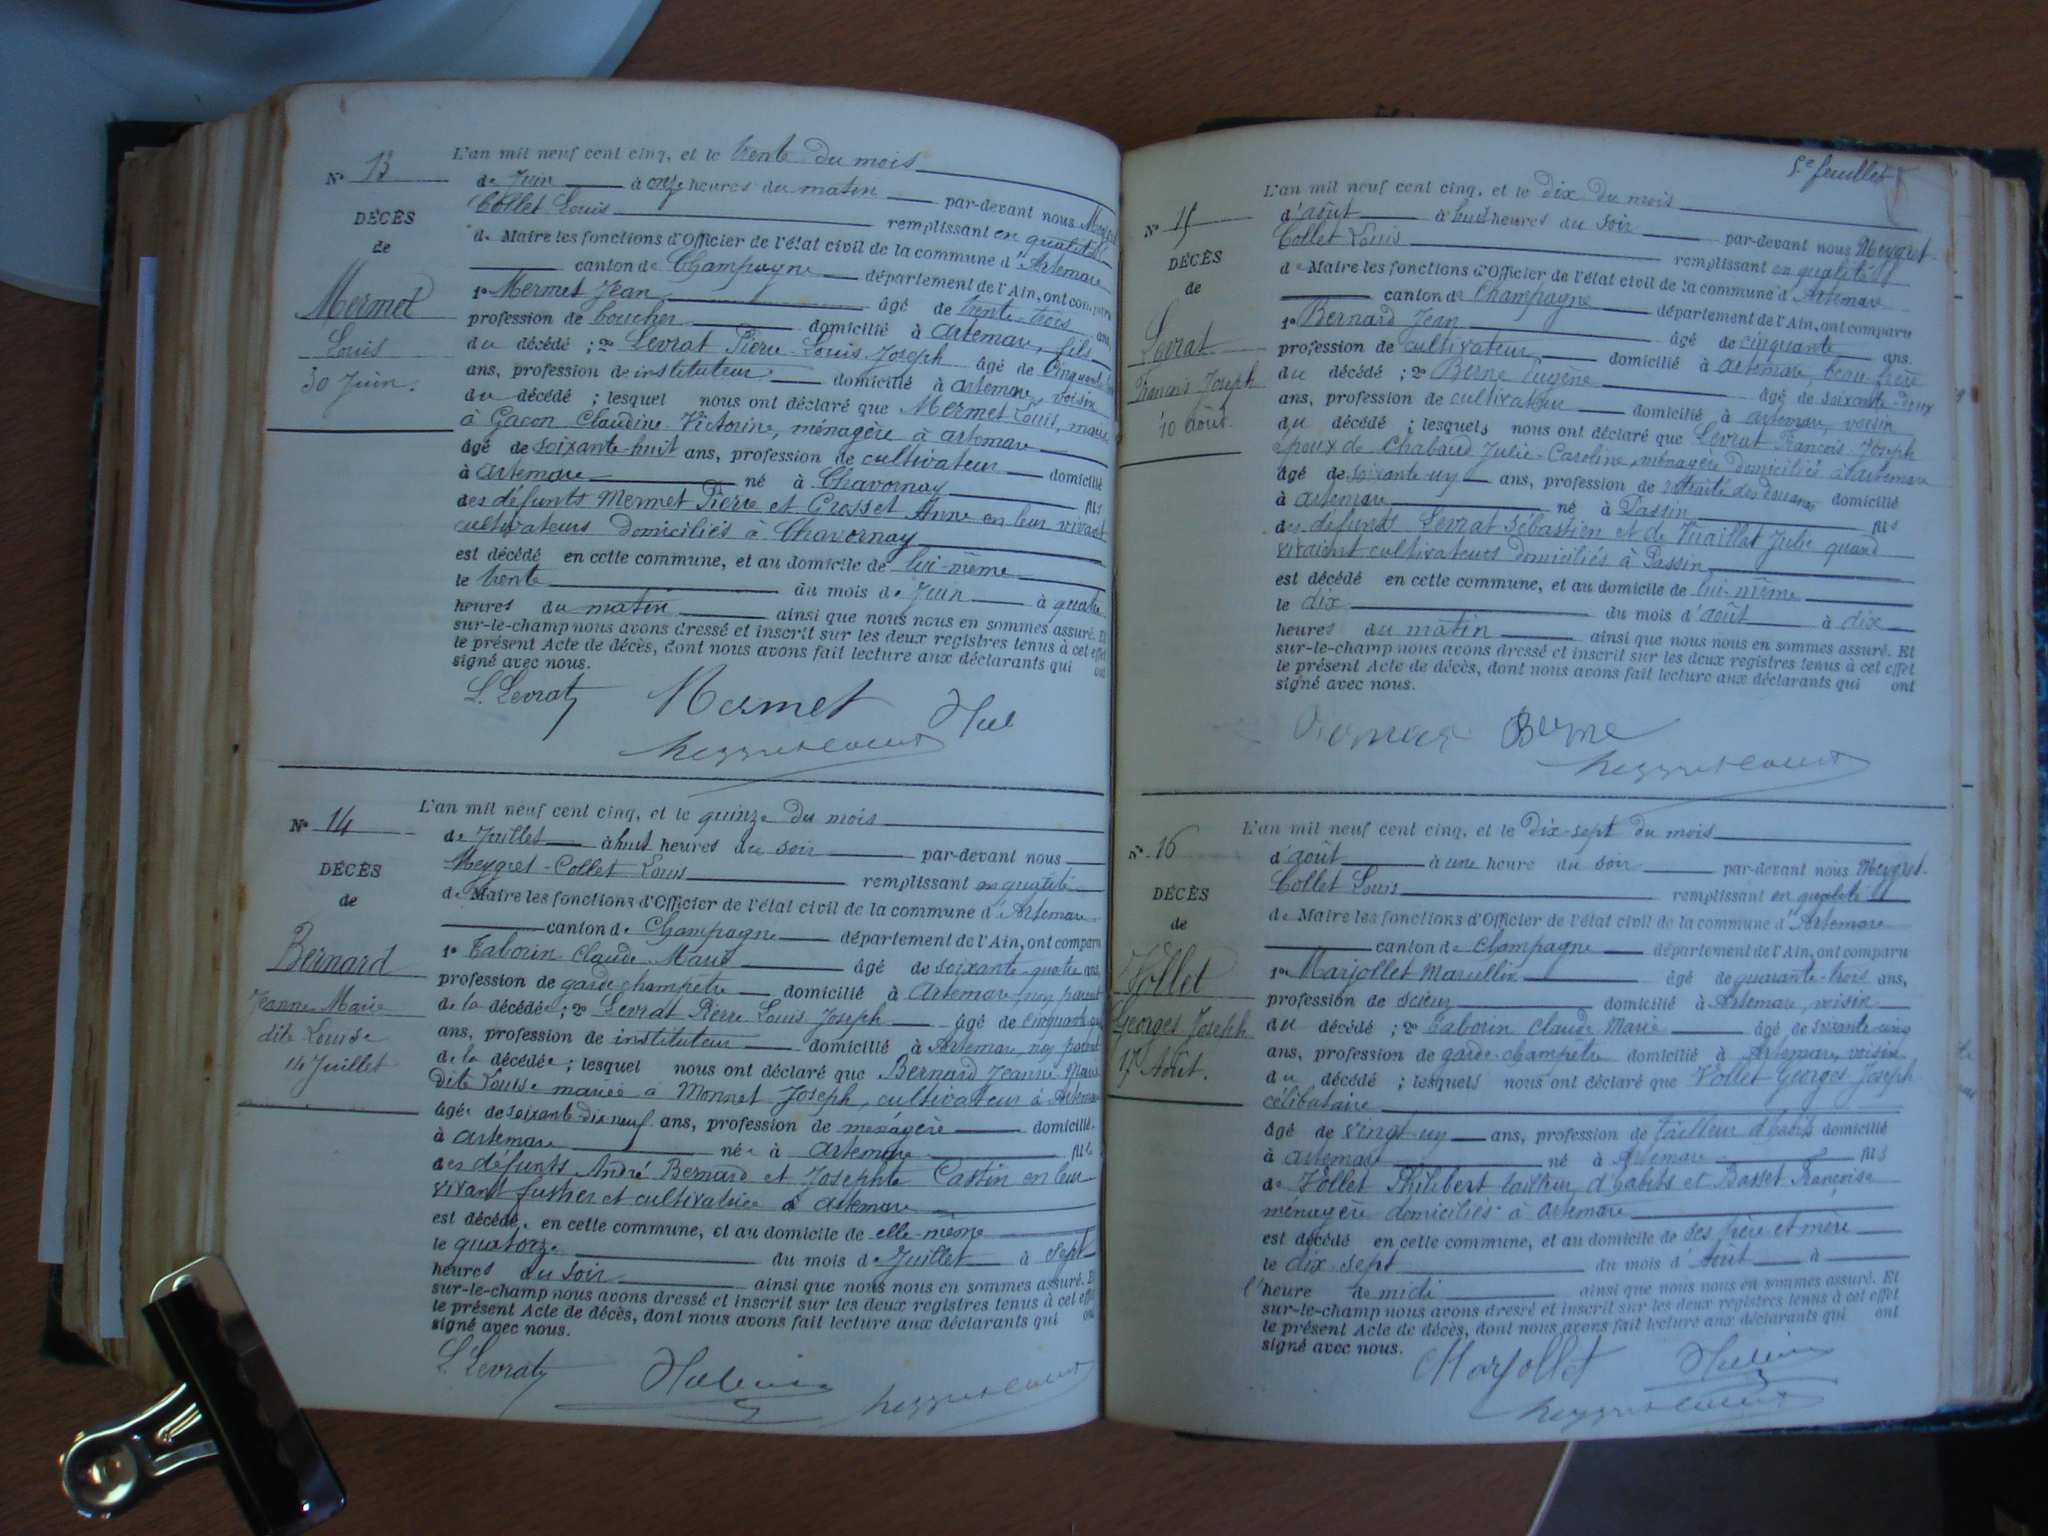 N° 13
DÉCÈS
de
Mermet
Louis
30 Juin.
L'an mil neuf cent cinq, et le trente du mois
de Juin à onze heures du matin par-devant nous
Collet Louis remplissant en qualité
de Maire les fonctions d'Officier de l'état civil de la commune d'Artemare
canton de Champagne département de l'Ain, ont comparu
1° Mermet Jean âgé de trente-trois ans,
profession de boucher domicilié à Artemare, fils
du décédé ; 2° Levrat Pierre Louis Joseph âgé de cinquante
ans, profession de instituteur domicilié à Artemare, voisin
du décédé ; lesquels nous ont déclaré que Mermet Louis, marié
à Gacon Claudine Victorine, ménagère à Artemare
âgé de soixante-huit ans, profession de cultivateur domicilié
à Artemare né à Chavornay fils
des défunts Mermet Pierre et Grosset Anne en leur vivant
cultivateurs domiciliés à Chavornay
est décédé en cette commune, et au domicile de lui-même
le trente du mois de Juin à quatre
heures du matin ainsi que nous nous en sommes assuré. Et
sur-le-champ nous avons dressé et inscrit sur les deux registres tenus à cet effet
le présent Acte de décès, dont nous avons fait lecture aux déclarants qui ont
signé avec nous.
L. Levrat Mermet
N° 14
DÉCÈS
de
Bernard
Jeanne Marie
dite Louise
14 Juillet
L'an mil neuf cent cinq, et le quinze du mois
de Juillet à huit heures du soir par-devant nous
Meygret-Collet Louis remplissant en qualité
de Maire les fonctions d'Officier de l'état civil de la commune d'Artemare
canton de Champagne département de l'Ain, ont comparu
1° Taborin Claude Marie âgé de soixante-quatre ans,
profession de garde-champêtre domicilié à Artemare, non parent
de la décédée ; 2° Levrat Pierre Louis Joseph âgé de cinquante
ans, profession de instituteur domicilié à Artemare, non parent
de la décédée ; lesquel nous ont déclaré que Bernard Jeanne Marie
dite Louise mariée à Monnet Joseph, cultivateur à Artemare
âgée de soixante-dix neuf ans, profession de ménagère domicilié
à Artemare née à Artemare fille
des défunts André Bernard et Josephte Castin en leur
vivant et cultivatrice à Artemare
est décédée en cette commune, et au domicile de elle-même
le quatorze du mois de Juillet à sept
heures du soir ainsi que nous nous en sommes assuré. Et
sur-le-champ nous avons dressé et inscrit sur les deux registres tenus à cet effet
le présent Acte de décès, dont nous avons fait lecture aux déclarants qui ont
signé avec nous.
L. Levrat
5e feuillet
N° 15
DÉCÈS
de
Levrat
François Joseph
10 Août.
L'an mil neuf cent cinq, et le dix du mois
d'août à huit heures du soir par-devant nous Meygret-
Collet Louis remplissant en qualité
de Maire les fonctions d'Officier de l'état civil de la commune d'Artemare
canton de Champagne département de l'Ain, ont comparu
1° Bernard Jean âgé de cinquante ans.
profession de cultivateur domicilié à Artemare, beau-frère
du décédé ; 2° Berne Eugène âgé de soixante-deux
ans, profession de cultivateur domicilié à Artemare, voisin
du décédé ; lesquels nous ont déclaré que Levrat François Joseph
époux de Chaboud Julie-Caroline, ménagère domiciliés à Artemare
âgé de soixante un ans, profession de retraité des douanes domicilié
à Artemare né à Passin fils
des défunts Levrat Sébastien et de Vuaillat Julie quand
vivaient cultivateurs domiciliés à Passin
est décédé en cette commune, et au domicile de lui-même
le dix du mois d'août à dix
heures du matin ainsi que nous nous en sommes assuré. Et
sur-le-champ nous avons dressé et inscrit sur les deux registres tenus à cet effet
le présent Acte de décès, dont nous avons fait lecture aux déclarants qui ont
signé avec nous.
Berne
N° 16
DÉCÈS
de
Vollet
Georges Joseph
17 Août.
L'an mil neuf cent cinq, et le dix-sept du mois
d'août à une heure du soir par-devant nous Meygret-
Collet Louis remplissant en qualité
de Maire les fonctions d'Officier de l'état civil de la commune d'Artemare
canton de Champagne département de l'Ain, ont comparu
1° Marjollet Marcellin âgé de quarante-trois ans,
profession de scieur domicilié à Artemare, voisin
du décédé ; 2° Taborin Claude Marie âgé de soixante-cinq
ans, profession de garde-champêtre domicilié à Artemare, voisin
du décédé ; lesquels nous ont déclaré que Vollet Georges Joseph
célibataire
âgé de vingt-un ans, profession de tailleur d'habits domicilié
à Artemare né à Artemare fils
de Vollet Philibert tailleur d'habits et Basset Françoise
ménagère domiciliés à Artemare
est décédé en cette commune, et au domicile de ses père et mère
le dix sept du mois d'Août à
l'heure de midi ainsi que nous nous en sommes assuré. Et
sur-le-champ nous avons dressé et inscrit sur les deux registres tenus à cet effet
le présent Acte de décès, dont nous avons fait lecture aux déclarants qui ont
signé avec nous.
Marjollet